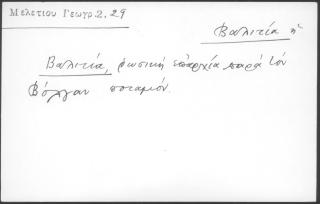 Μελετίου Γεωγρ.2,29
Βαλιτία ἡ
Βαλιτία, ρωσικὴ ἐπαρχία παρὰ τὸν
Βόλγαν ποταμόν.